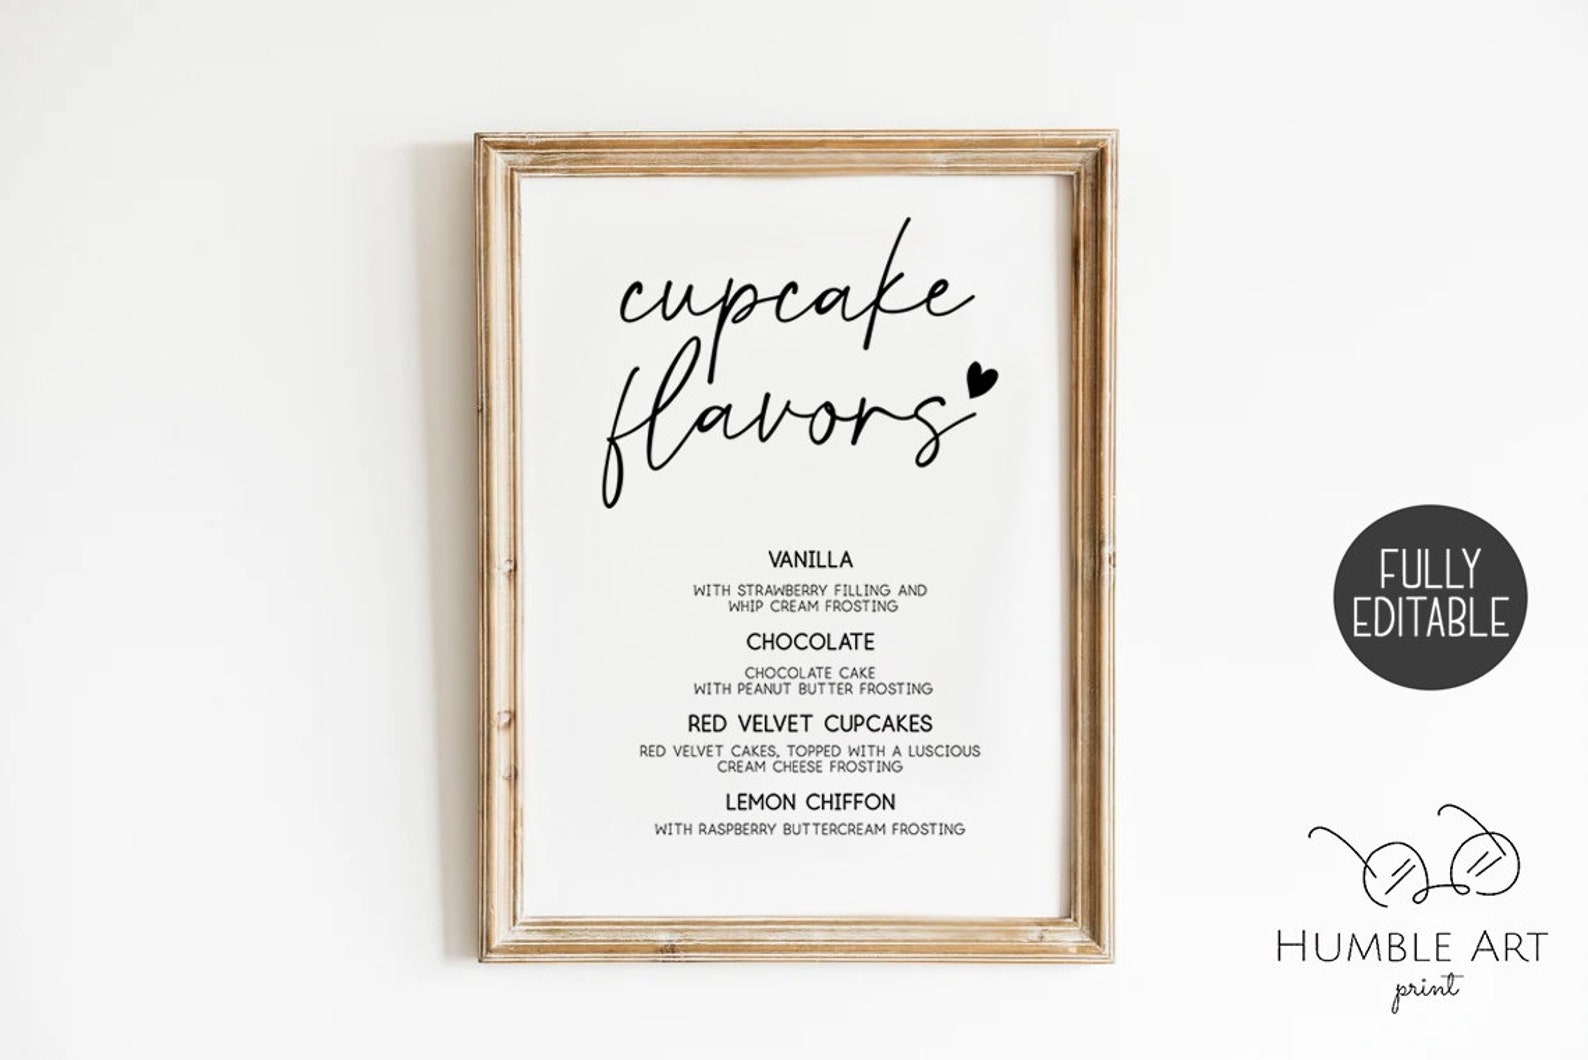 cupcake
flavors
VANILLA
WITH STRAWBERRY FILLING AND
WHIP CREAM FROSTING
CHOCOLATE
CHOCOLATE CAKE
WITH PEANUT BUTTER FROSTING
RED VELVET CUPCAKES
RED VELVET CAKES, TOPPED WITH A LUSCIOUS
CREAM CHEESE FROSTING
LEMON CHIFFON
WITH RASPBERRY BUTTERCREAM FROSTING
FULLY
EDITABLE
HUMBLE ART
print